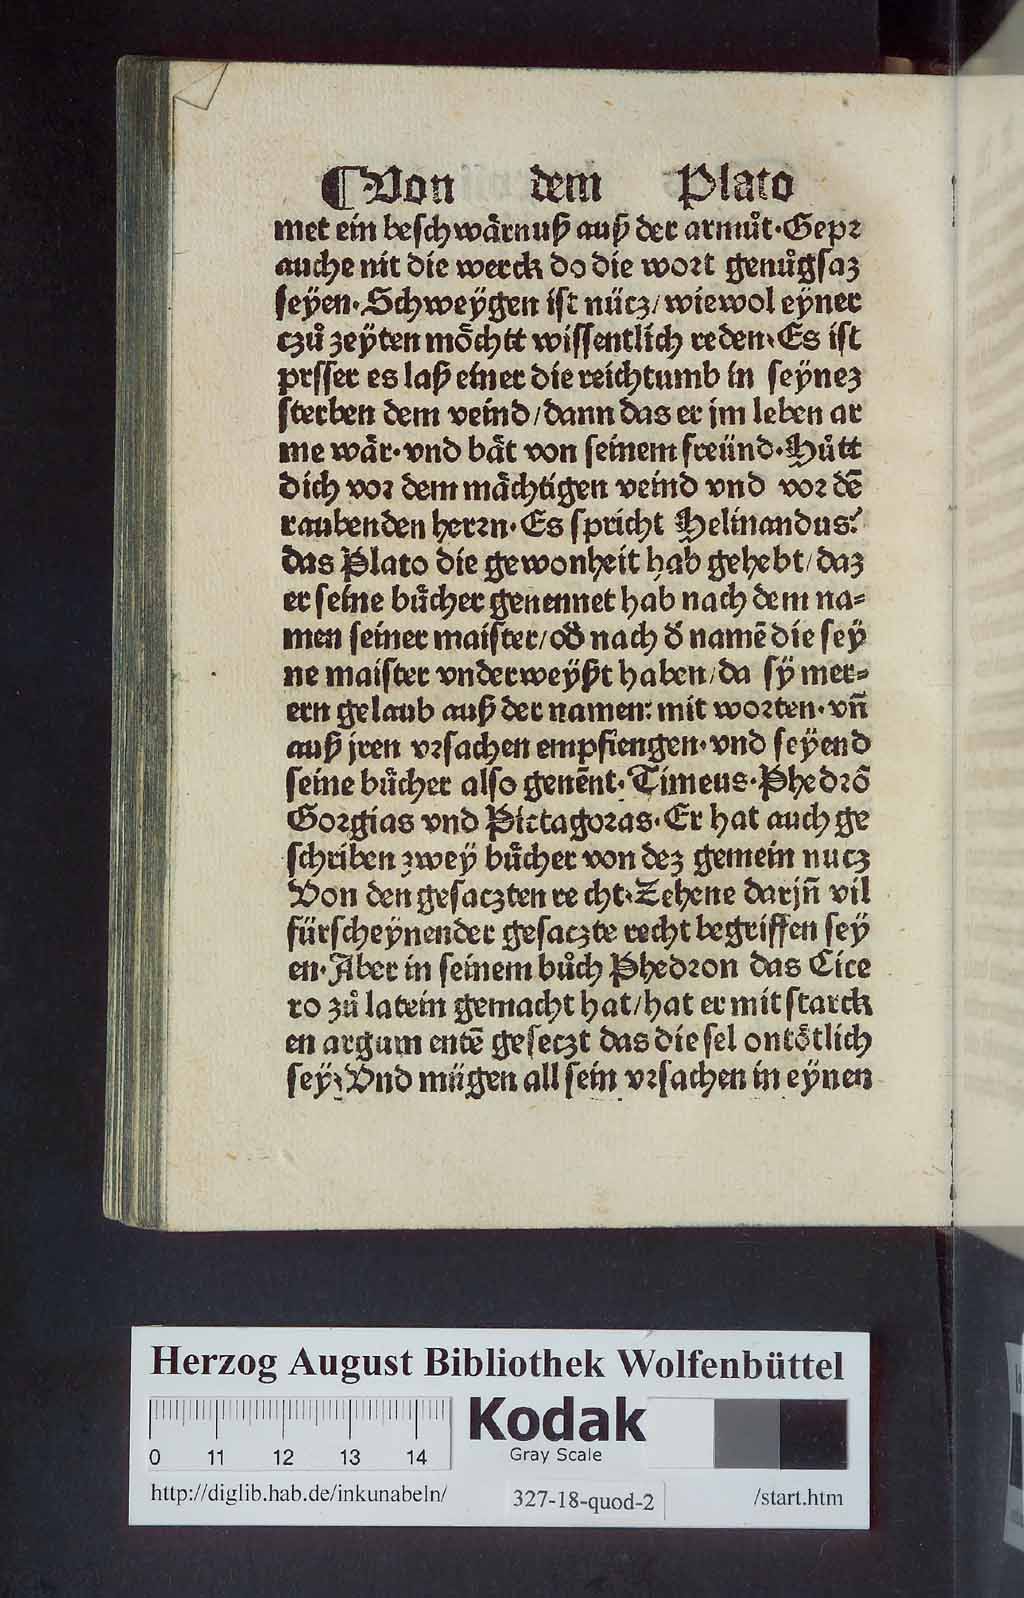 ¶Von dem Plato
met ein beschwårnuß auß der armůt·Gepr
auche nit die werck do die wort genůgsaʒ
seÿen·Schweÿgen ist nücz/wiewol eÿner
czů zeÿten mo̊chtt wissentlich reden·Es ist
prsser es laß einer die reichtumb in seÿneʒ
sterben dem veind/dann das er jm leben ar
me wår·vnd båt von seinem freünd·Hůtt
dich vor dem måchtigen veind vnd vor dē
raubenden herrn·Es spricht Helinandus:
das Plato die gewonheit hab gehebt/daʒ
er seine bůcher genennet hab nach dem na=
men seiner maister/od̓ nach d̓ namē die seÿ
ne maister vnderweÿßt haben/da sÿ mer=
ern gelaub auß der namen: mit worten·vn̄
auß jren vrsachen empfiengen·vnd seÿend
seine bůcher also genēnt·Timeus·Phedrō
Gorgias vnd Pictagoras·Er hat auch ge
schriben zwey bůcher von deʒ gemein nucz
Von den gesaczten re cht·Zehene darjn̄ vil
fürscheÿnender gesaczte recht begriffen seÿ
en·Aber in seinem bůch Phedron das Cice
ro zů latein gemacht hat/hat er mit starck
en argum entē geseczt das die sel ontőtlich
seÿ·Vnd mügen all sein vrsachen in eÿnen
Herzog August Bibliothek Wolfenbüttel
0 11 12 13 14
Kodak
Gray Scale
http://diglib.hab.de/inkunabeln/ 327-18-quod-2 /start.htm